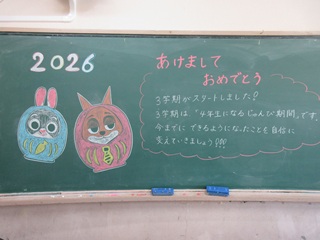 2026
あけまして
おめでとう
3学期がスタートしました!
3学期は"4年生になるじゅんび期間"です。
今までにできるようになったことを自信に
変えていきましょう!!!